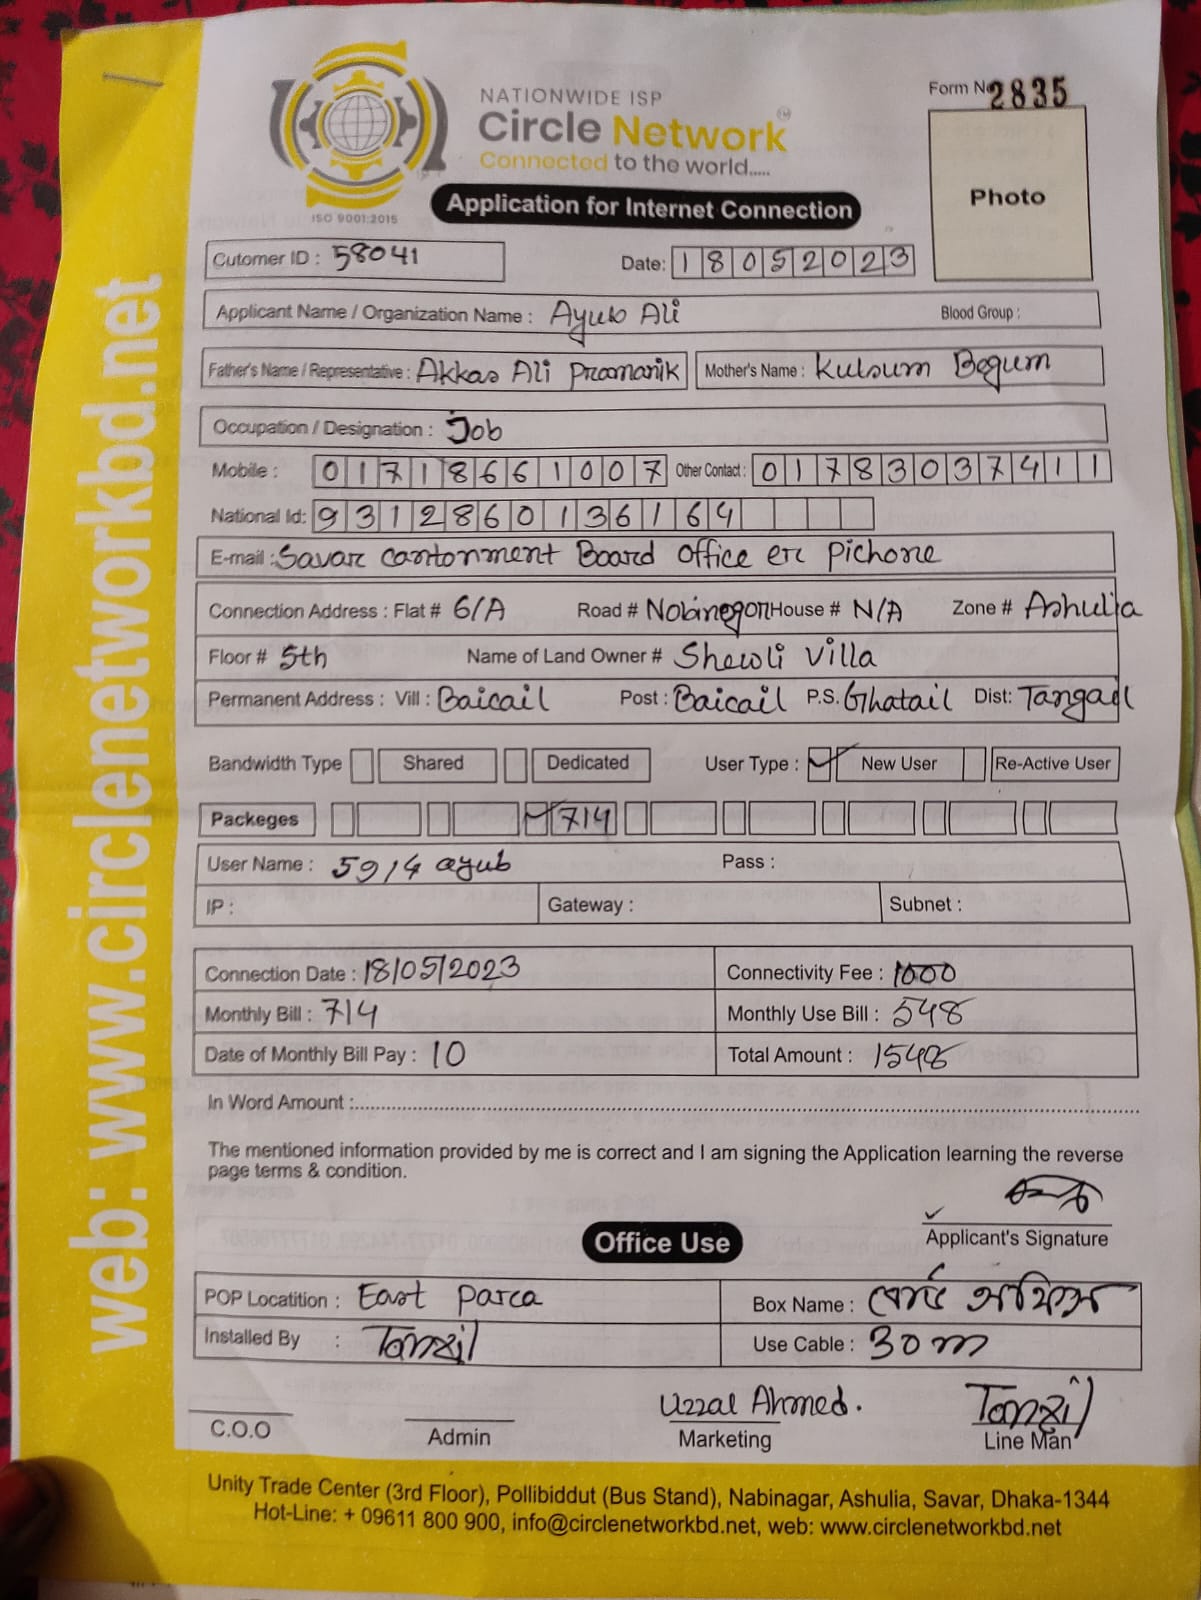 NATIONWIDE ISP
Circle Network
Connected to the world.....
ISO 9001:2015
Form No 2835
Photo
Application for Internet Connection
Cutomer ID : 58041
Date: 18052023
Applicant Name / Organization Name : Ayub Ali Blood Group :
Father's Name / Representative : Akkas Ali Pramanik Mother's Name : Kulsum Begum
Occupation / Designation : Job
Mobile : 01718661007 Other Contact : 01783037411
National Id: 9312860136164
E-mail : Savar cantonment Board office er pichone
Connection Address : Flat # 6/A Road # Nobinegon House # N/A Zone # Ashulia
Floor # 5th Name of Land Owner # Shewli Villa
Permanent Address : Vill : Baicail Post : Baicail P.S. Ghatail Dist: Tangail
Bandwidth Type Shared Dedicated User Type : New User Re-Active User
Packeges 714
User Name : 5914 ayub Pass :
IP : Gateway : Subnet :
Connection Date : 18/05/2023 Connectivity Fee : 1000
Monthly Bill : 714 Monthly Use Bill : 548
Date of Monthly Bill Pay : 10 Total Amount : 1548
In Word Amount :
The mentioned information provided by me is correct and I am signing the Application learning the reverse
page terms & condition.
Applicant's Signature
Office Use
POP Locatition : East Parca Box Name : বোর্ড অফিস
Installed By : Tanzil Use Cable : 30 m
Uzzal Ahmed. Tanzil
C.O.O Admin Marketing Line Man
Unity Trade Center (3rd Floor), Pollibiddut (Bus Stand), Nabinagar, Ashulia, Savar, Dhaka-1344
Hot-Line: + 09611 800 900, info@circlenetworkbd.net, web: www.circlenetworkbd.net
web: www.circlenetworkbd.net